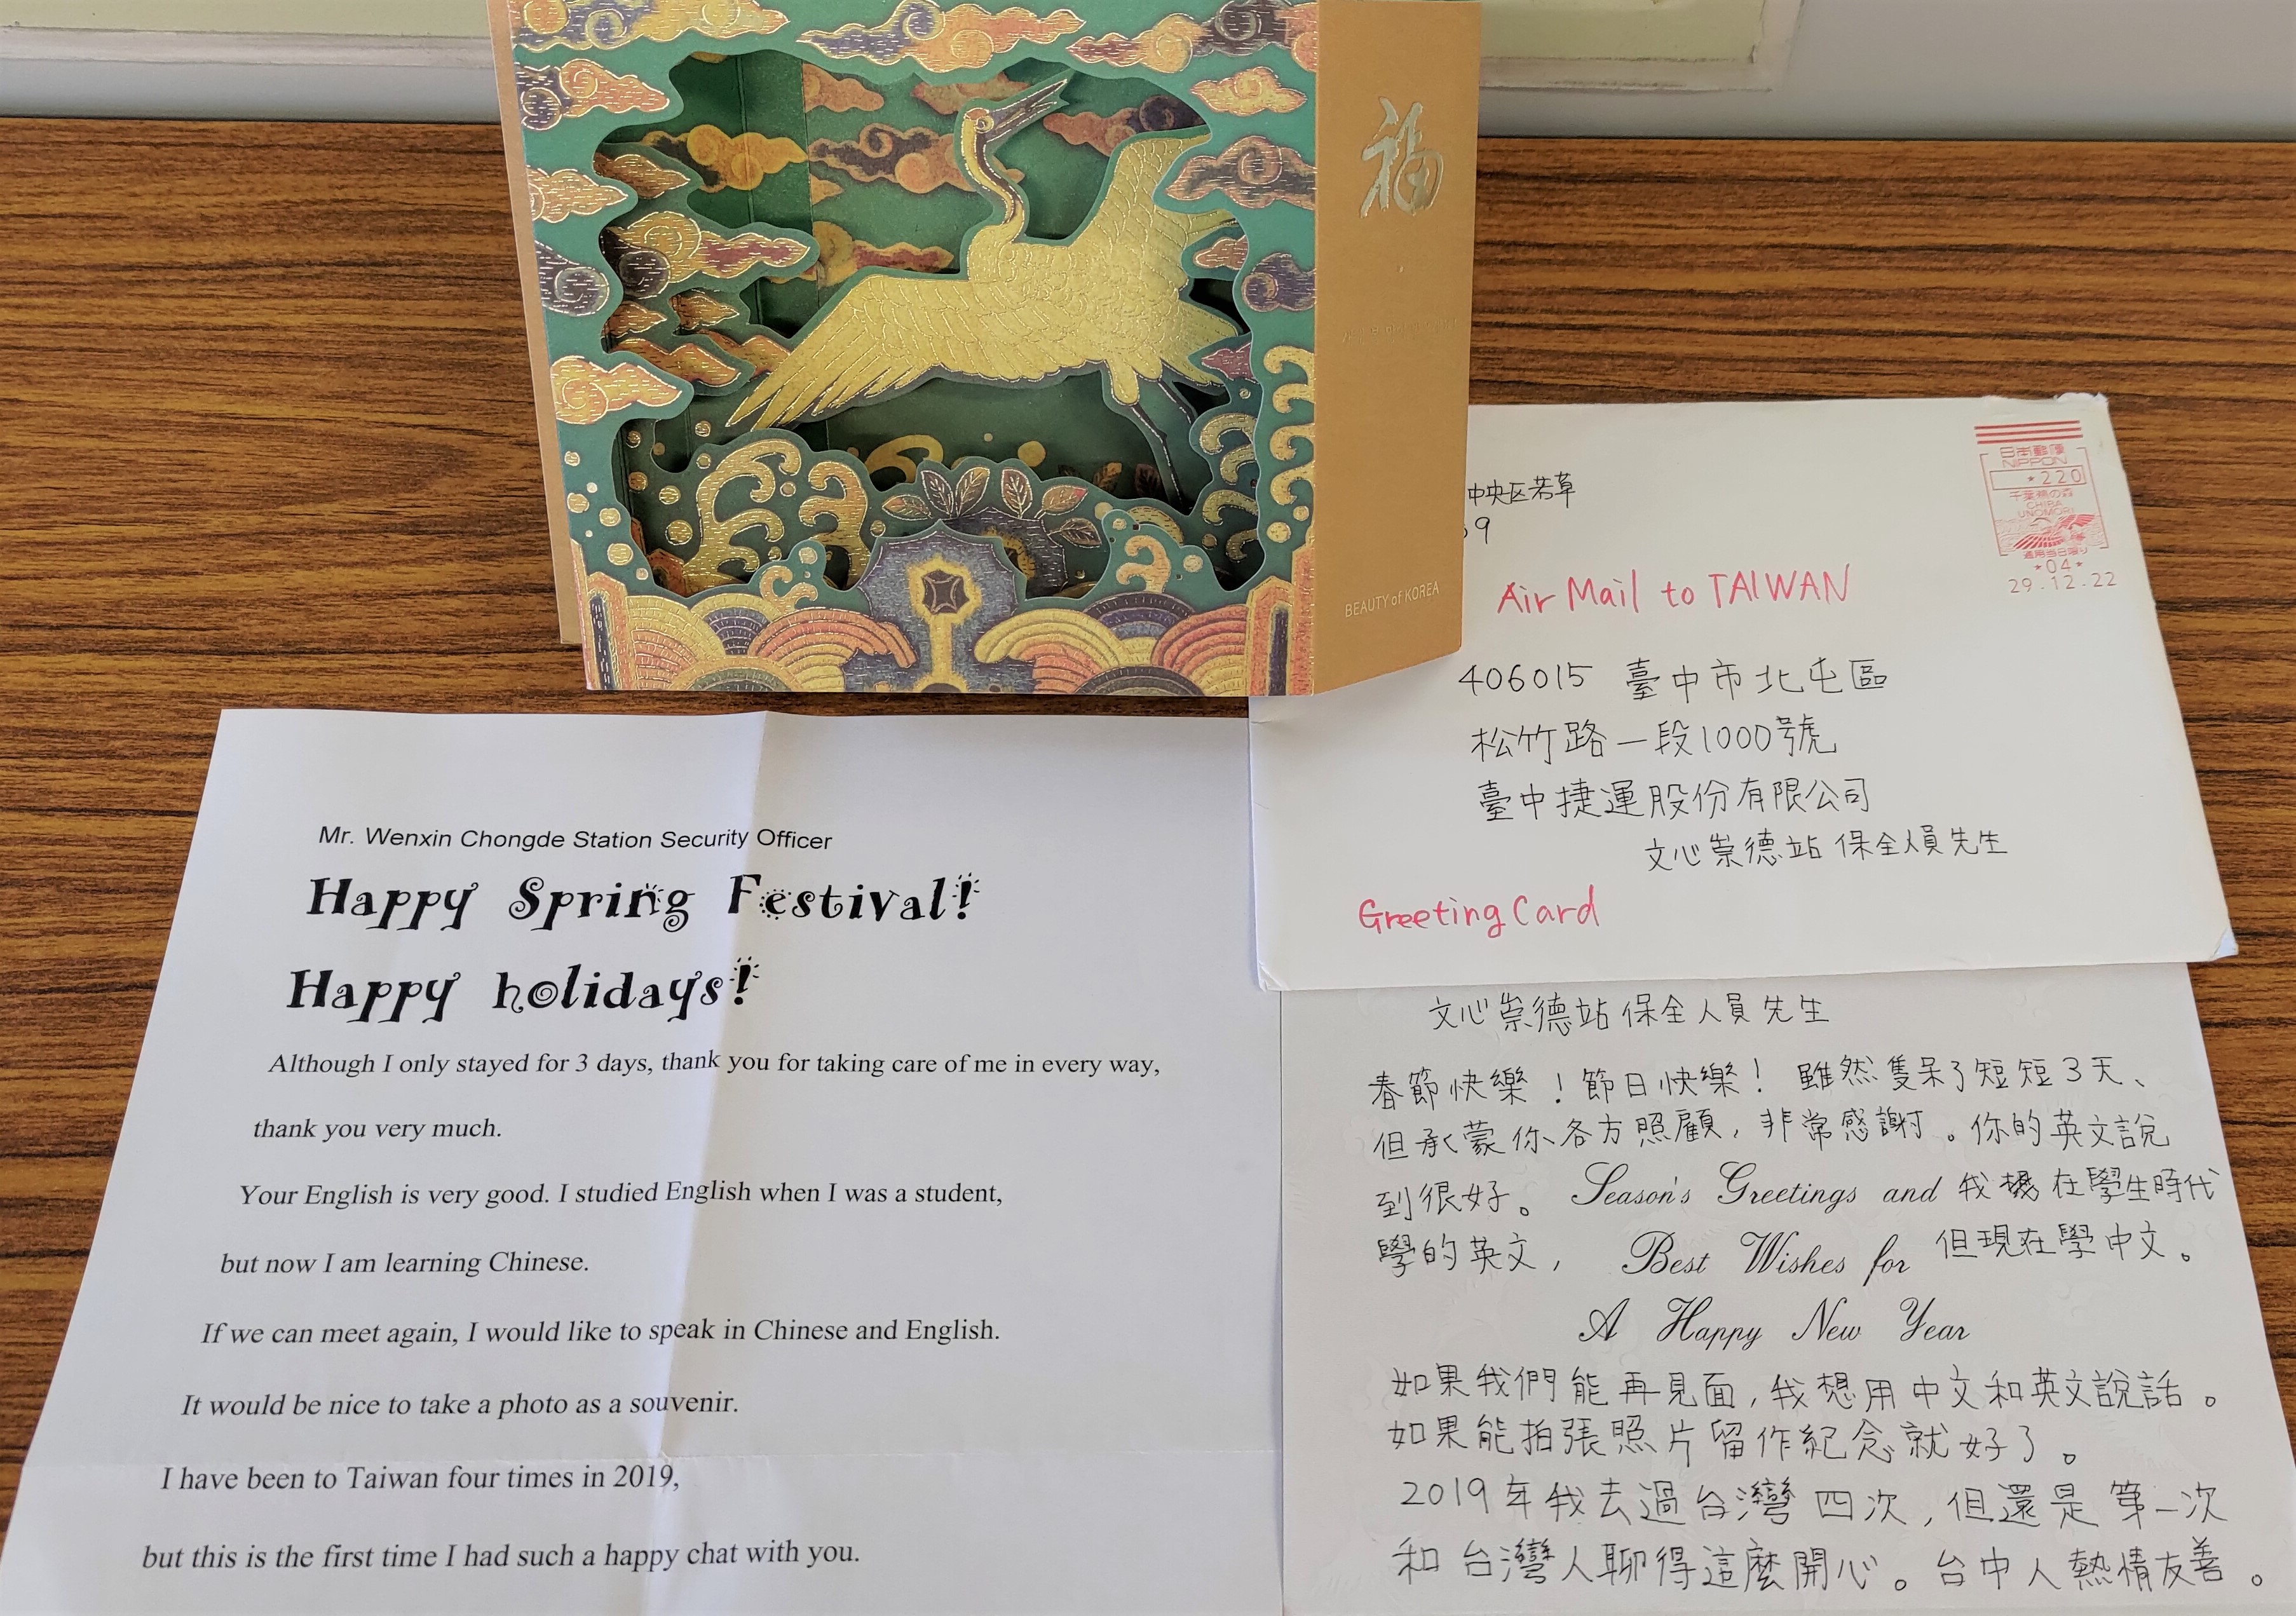 福
BEAUTY of KOREA
中央区若草
日本郵便
NIPPON
*220
千葉鵜の森
CHIBA
UNOMORI
適用当日限り
*04*
29.12.22
Air Mail to TAIWAN
406015 臺中市北屯區
松竹路一段1000號
臺中捷運股份有限公司
文心崇德站 保全人員先生
Greeting Card
Mr. Wenxin Chongde Station Security Officer
Happy Spring Festival!
Happy holidays!
Although I only stayed for 3 days, thank you for taking care of me in every way,
thank you very much.
Your English is very good. I studied English when I was a student,
but now I am learning Chinese.
If we can meet again, I would like to speak in Chinese and English.
It would be nice to take a photo as a souvenir.
I have been to Taiwan four times in 2019,
but this is the first time I had such a happy chat with you.
文心崇德站 保全人員先生
春節快樂！節日快樂！雖然隻呆了短短3天、
但承蒙你各方照顧，非常感謝。你的英文說
到很好。 Season's Greetings and 我 在學生時代
學的英文， Best Wishes for 但現在學中文。
A Happy New Year
如果我們能再見面，我想用中文和英文說話。
如果能拍張照片留作紀念就好了。
2019年我去過台灣四次，但還是第一次
和台灣人聊得這麼開心。台中人熱情友善。